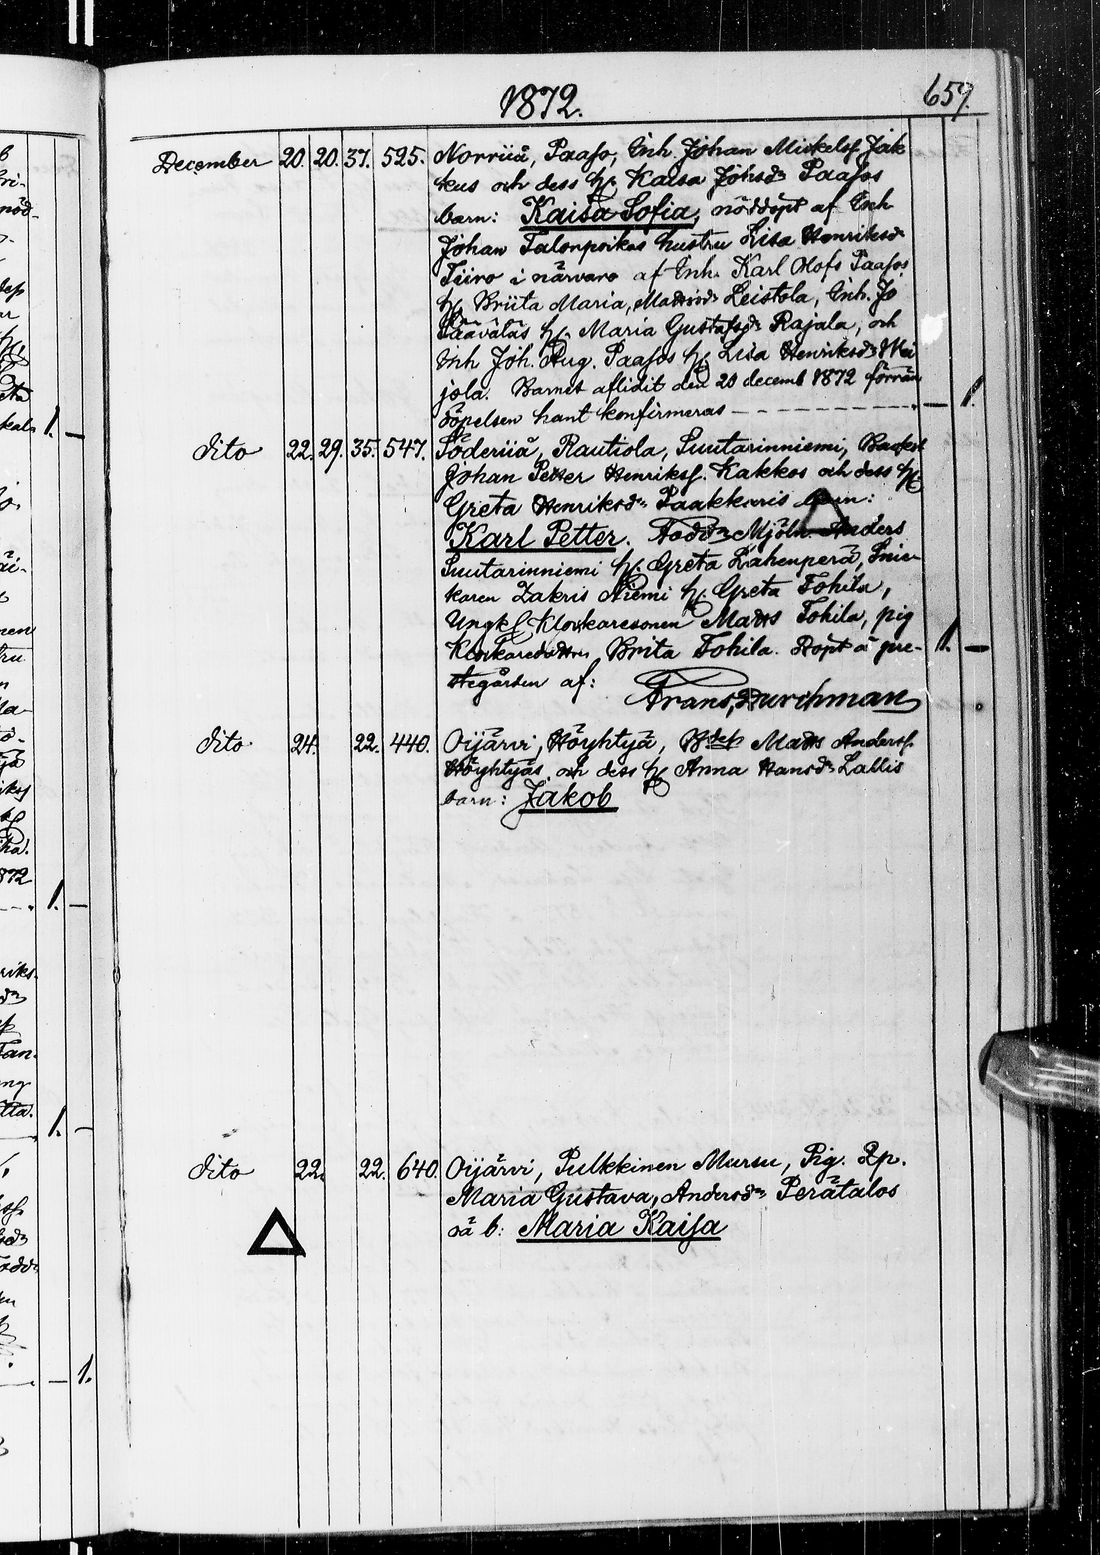 1872.
659.
December 20. 20. 37. 525. Norriiå, Paaso, Inh. Johan Mickelss. Jak
kus och dess h. Kaisa Johsdr Paasos
barn: Kaisa Sofia, nöddöpt af Inh
Johan Talonpoikas hustru Lisa Henriksdr
Tiiro i närvaro af Inh. Karl Olofs Paasos
h. Briita Maria, Leistola, Inh. Jo
Päävätäs h. Maria Gustafsdr Rajala, och
Inh Joh. Aug. Paasos h. Lisa Henriksdr Mai
jola. Barnet aflidit den 20 decemb 1872 förrän
Döpelsen hant konfirmeras — 1.
dito 22. 29. 35. 547. Söderiiå, Rautiola, Suutarinniemi,
Johan Petter Henrikss. Kakkos och dess h.
Greta Henriksdr Paakkaris barn:
Karl Petter. Fadd: Mjöln. Anders
Suutarinniemi h. Greta Lahenperä, Snic-
karen Zakris Niemi h. Greta Tohila,
Ungk Klockaresonen Matts Tohila, pig
Klockaredottren Brita Tohila. Döpt å pre- 1. —
stegården af: Frans Durchman
dito 24. 22. 440. Oijärvi, Höyhtyä, Matts Anderss.
Höyhtyäs och dess h. Anna Hansdr Lallis
barn: Jakob
dito 22. 22. 640. Oijärvi, Pulkkinen Mursu, Pig. Qp.
Maria Gustava, Andersdr Perätalos
oä b: Maria Kaisa